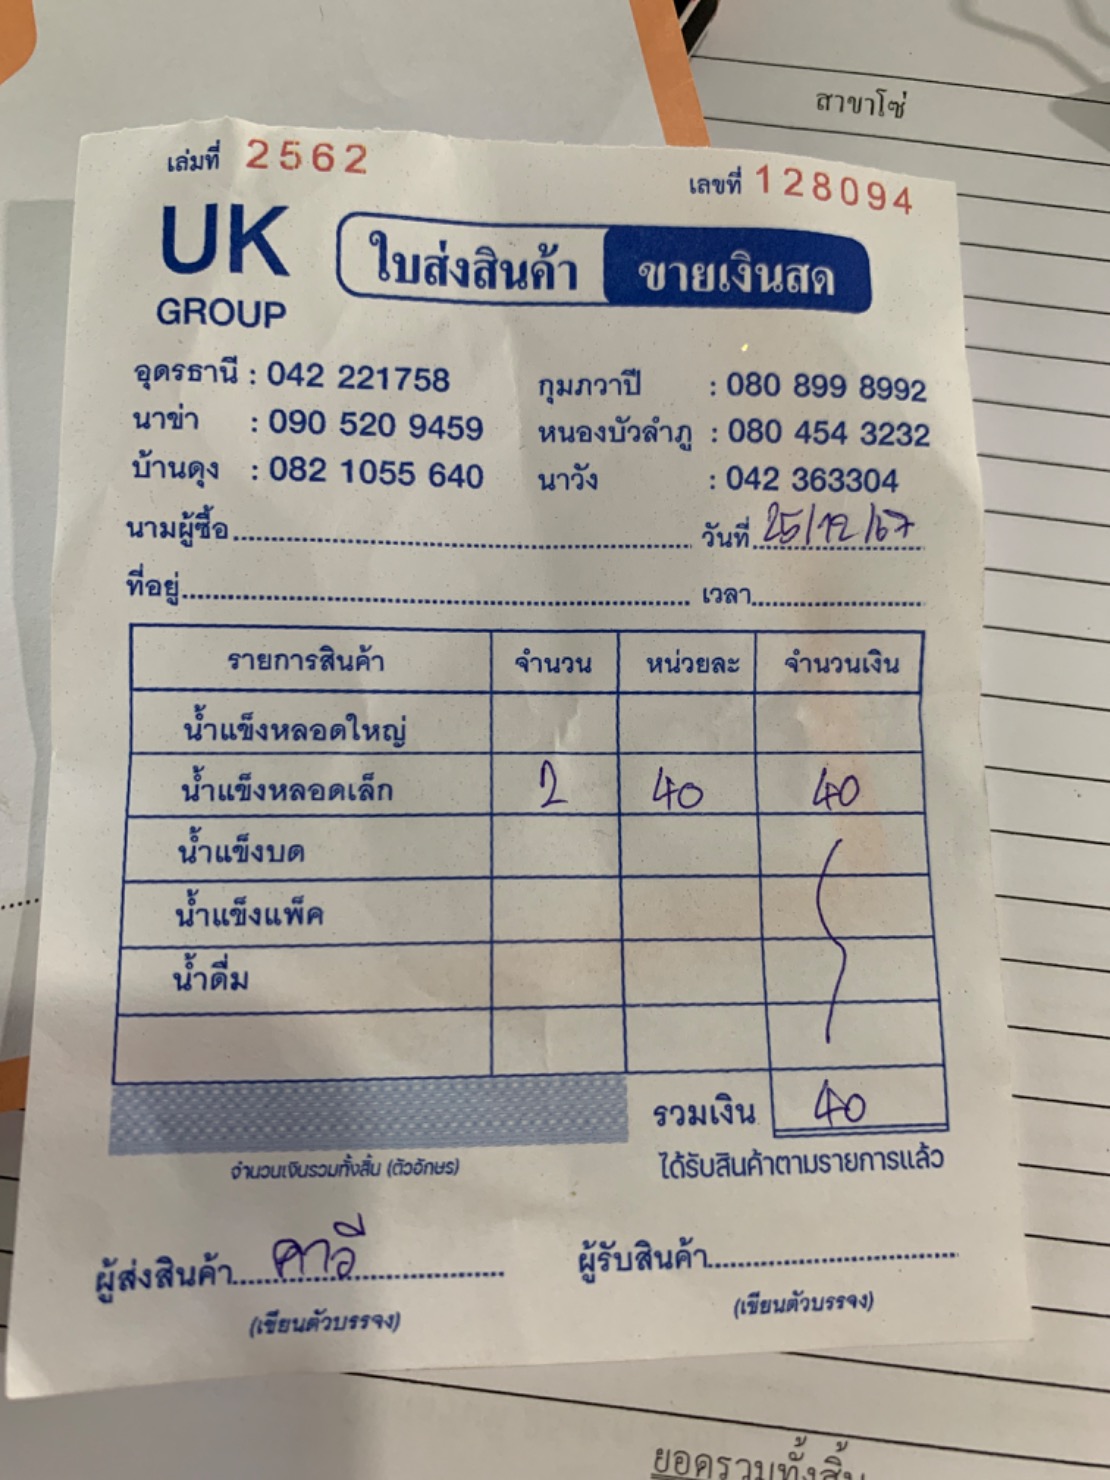 สาขาโซ่
เล่มที่ 2562 เลขที่ 128094
UK GROUP ใบส่งสินค้า ขายเงินสด
อุดรธานี : 042 221758 กุมภวาปี : 080 899 8992
นาข่า : 090 520 9459 หนองบัวลำภู : 080 454 3232
บ้านดุง : 082 1055 640 นาวัง : 042 363304
นามผู้ซื้อ วันที่ 25/12/67
ที่อยู่ เวลา
รายการสินค้า จำนวน หน่วยละ จำนวนเงิน
น้ำแข็งหลอดใหญ่
น้ำแข็งหลอดเล็ก 2 40 40
น้ำแข็งบด
น้ำแข็งแพ็ค
น้ำดื่ม
รวมเงิน 40
จำนวนเงินรวมทั้งสิ้น (ตัวอักษร) ได้รับสินค้าตามรายการแล้ว
ผู้ส่งสินค้า ผู้รับสินค้า
(เขียนตัวบรรจง) (เขียนตัวบรรจง)
ยอดรวมทั้งสิ้น